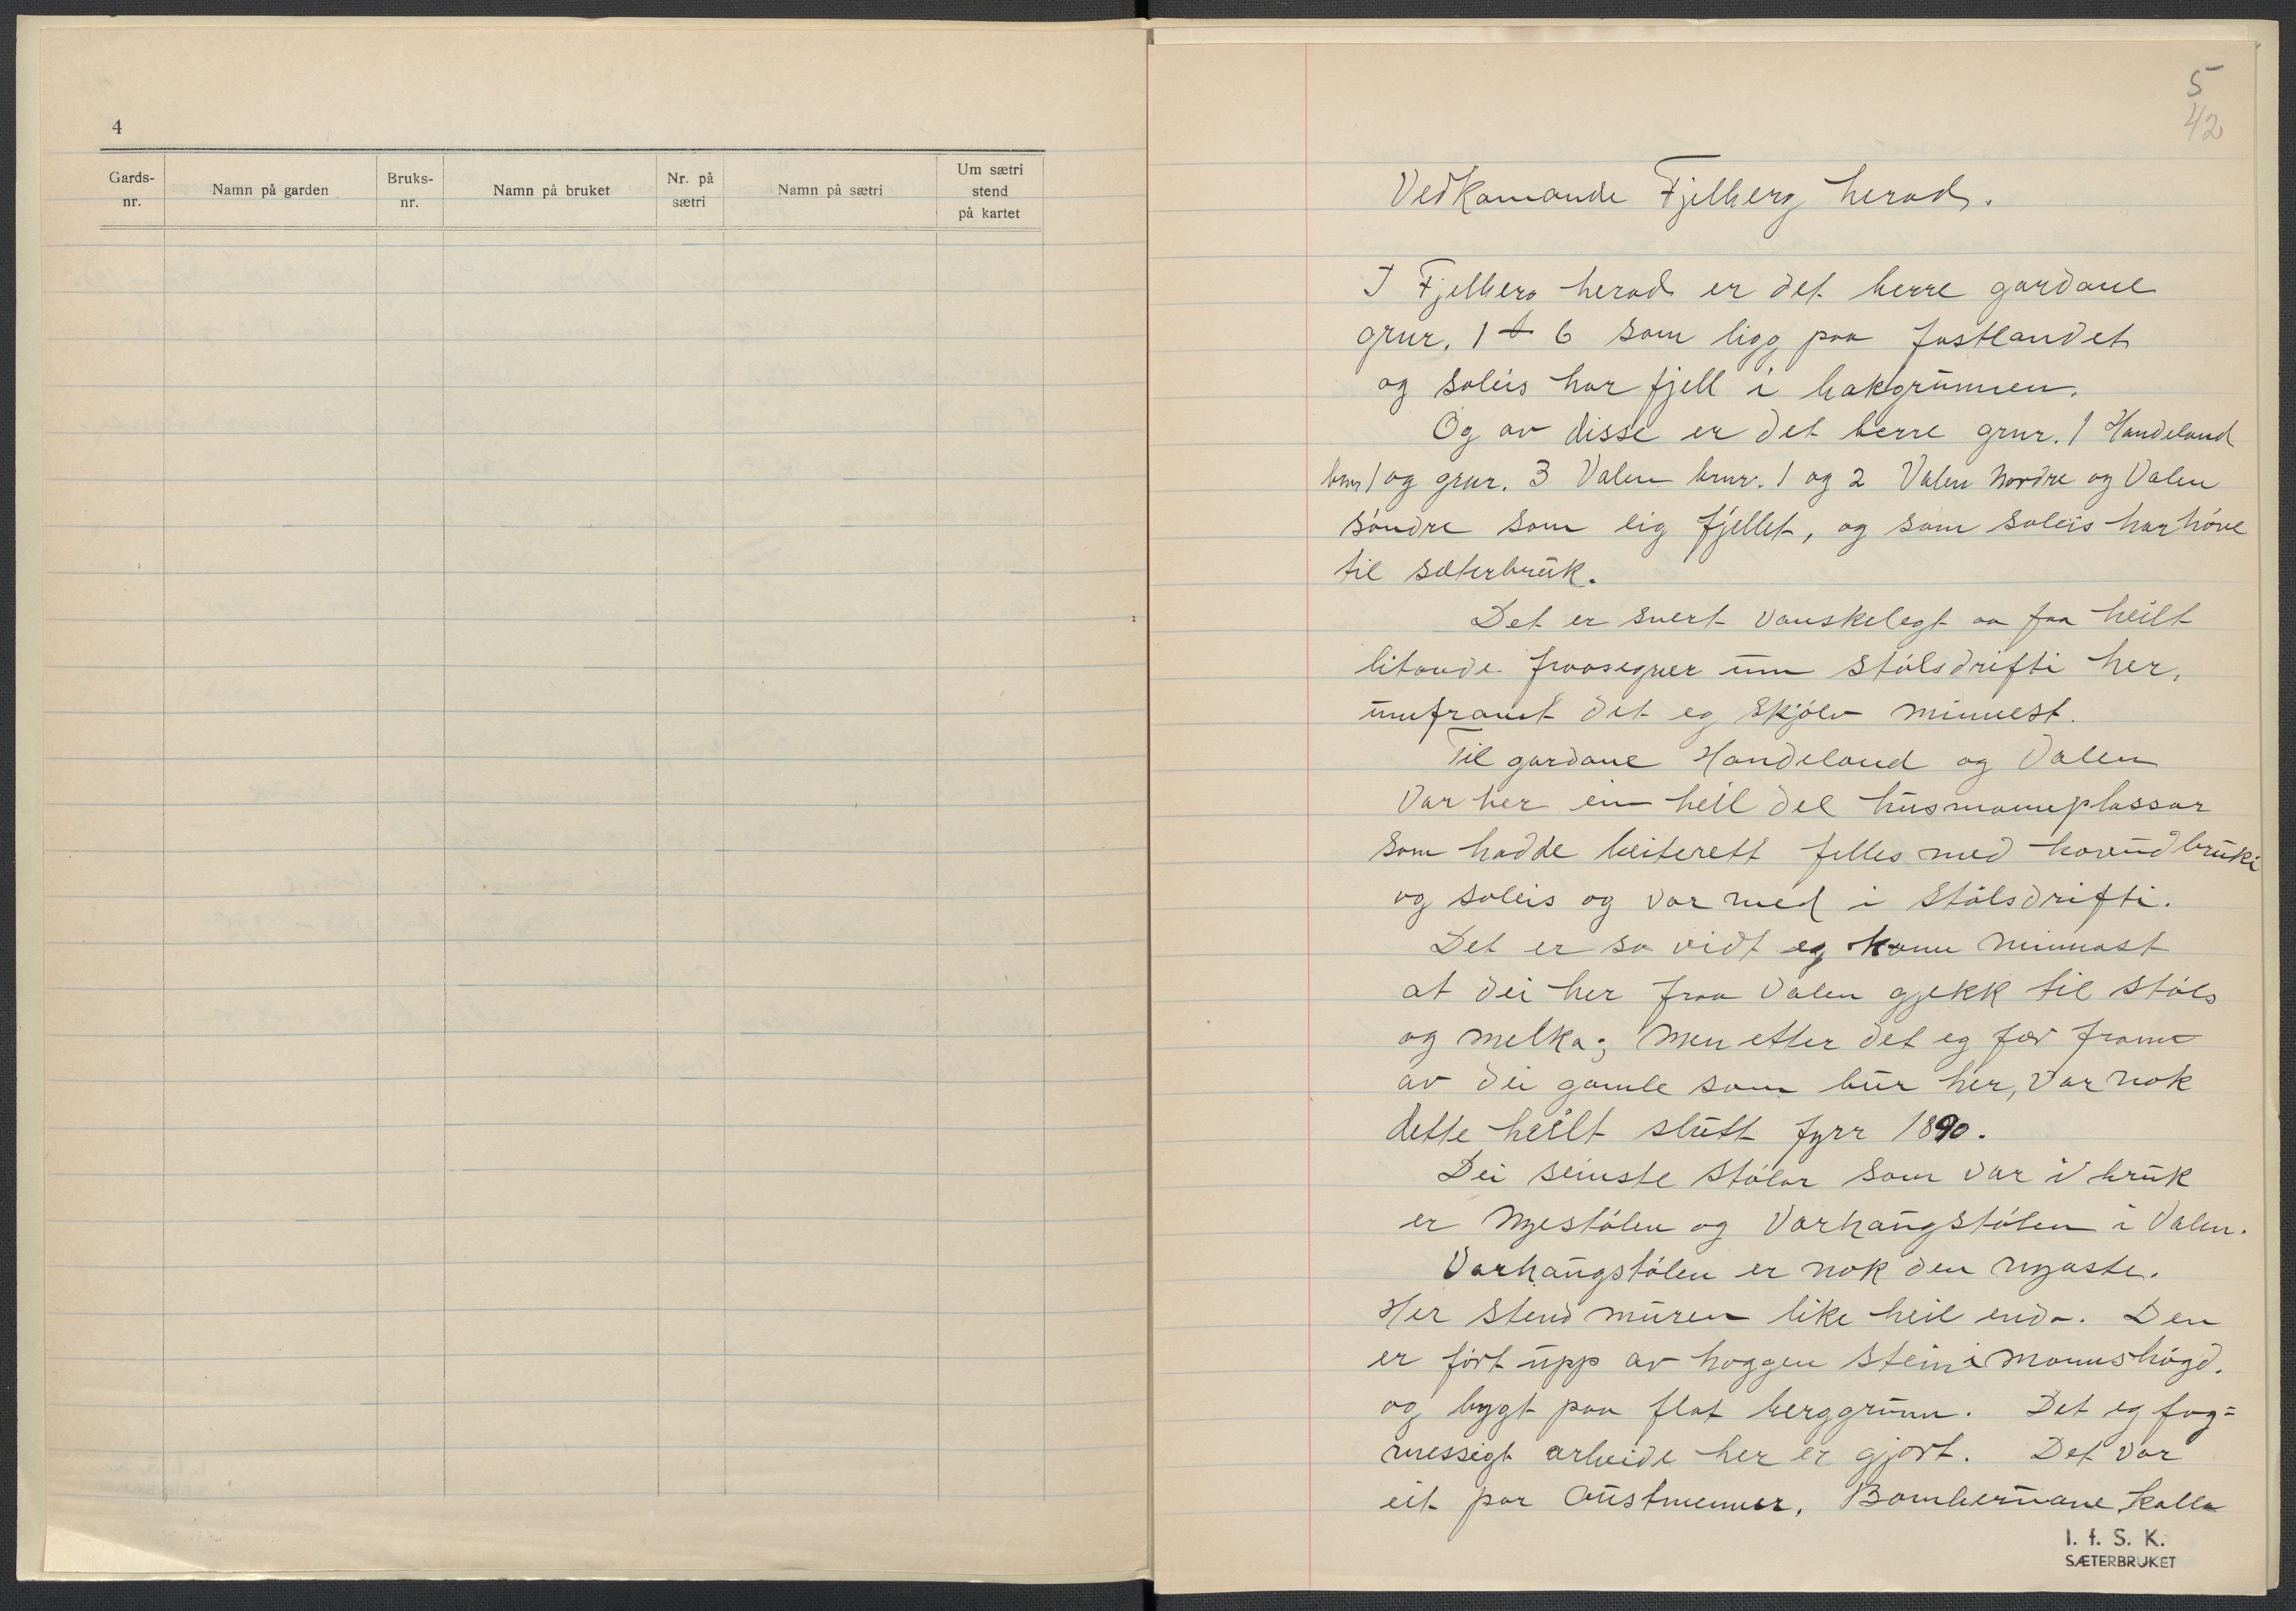 4
Gards-
nr.
Namn på garden
Bruks-
nr.
Namn på bruket
Nr. på
sætri
Namn på sætri
Um sætri
stend
på kartet
5
42
Vedkomande Fjelberg herad.
I Fjelberg herad er det berre gardane
grnr. 1 t 6 som ligg paa fastlandet
og soleis har fjell i bakgrunnen.
Og av disse er det berre grnr. 1 Handeland
bnr 1 og grnr. 3 Valen brnr. 1 og 2 Valen Nordre og Valen
söndre som eig fjellet, og som soleis har höve
til sæterbruk.
Det er svert vanskelegt aa faa heilt
litande fraasegner um stölsdrifti her,
umframt det eg skjölv minnest.
Til gardane Handeland og Valen
var her ein heil del husmannsplassar
som hadde beiterett felles med hovudbruki
og soleis og var med i stölsdrifti.
Det er so vidt eg kann minnast
at dei her fraa Valen gjekk til stöls
og melka; men etter det eg fær fram
av dei gamle som bur her, var nok
dette heilt slutt fyrr 1890.
Dei seinste stölar som var i bruk
er Nyestölen og Varhaugstölen i Valen.
Varhaugstölen er nok den nyaste.
Her stend muren like heil enda. Den
er fört upp av hoggen stein i mannshögd.
og bygt paa flat berggrunn. Det eg fag=
messigt arbeide her er gjort. Det var
eit par Austmenner, kalla
I. f. S. K.
SÆTERBRUKET